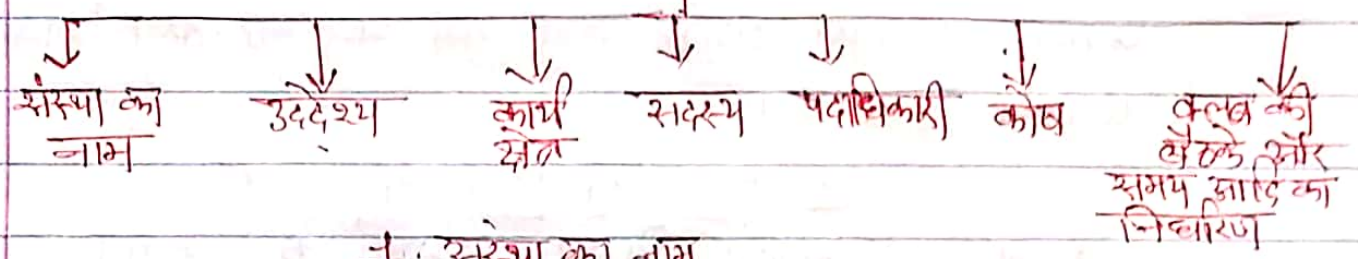 संस्था का नाम
उद्देश्य
कार्य क्षेत्र
सदस्य
पदाधिकारी
कोष
क्लब की
बैठके और
समय आदि का
निर्धारण
1. संस्था का नाम